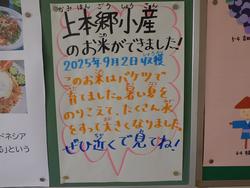 かみほんごうしょうさん
上本郷小産
のお米ができました!
2025年9月2日収穫
このお米はバケツで
育てました。暑い夏を
のりこえて、たくさん水
をすって大きくなりました。
ぜひ近くで見てね!
ドネシア
る」という